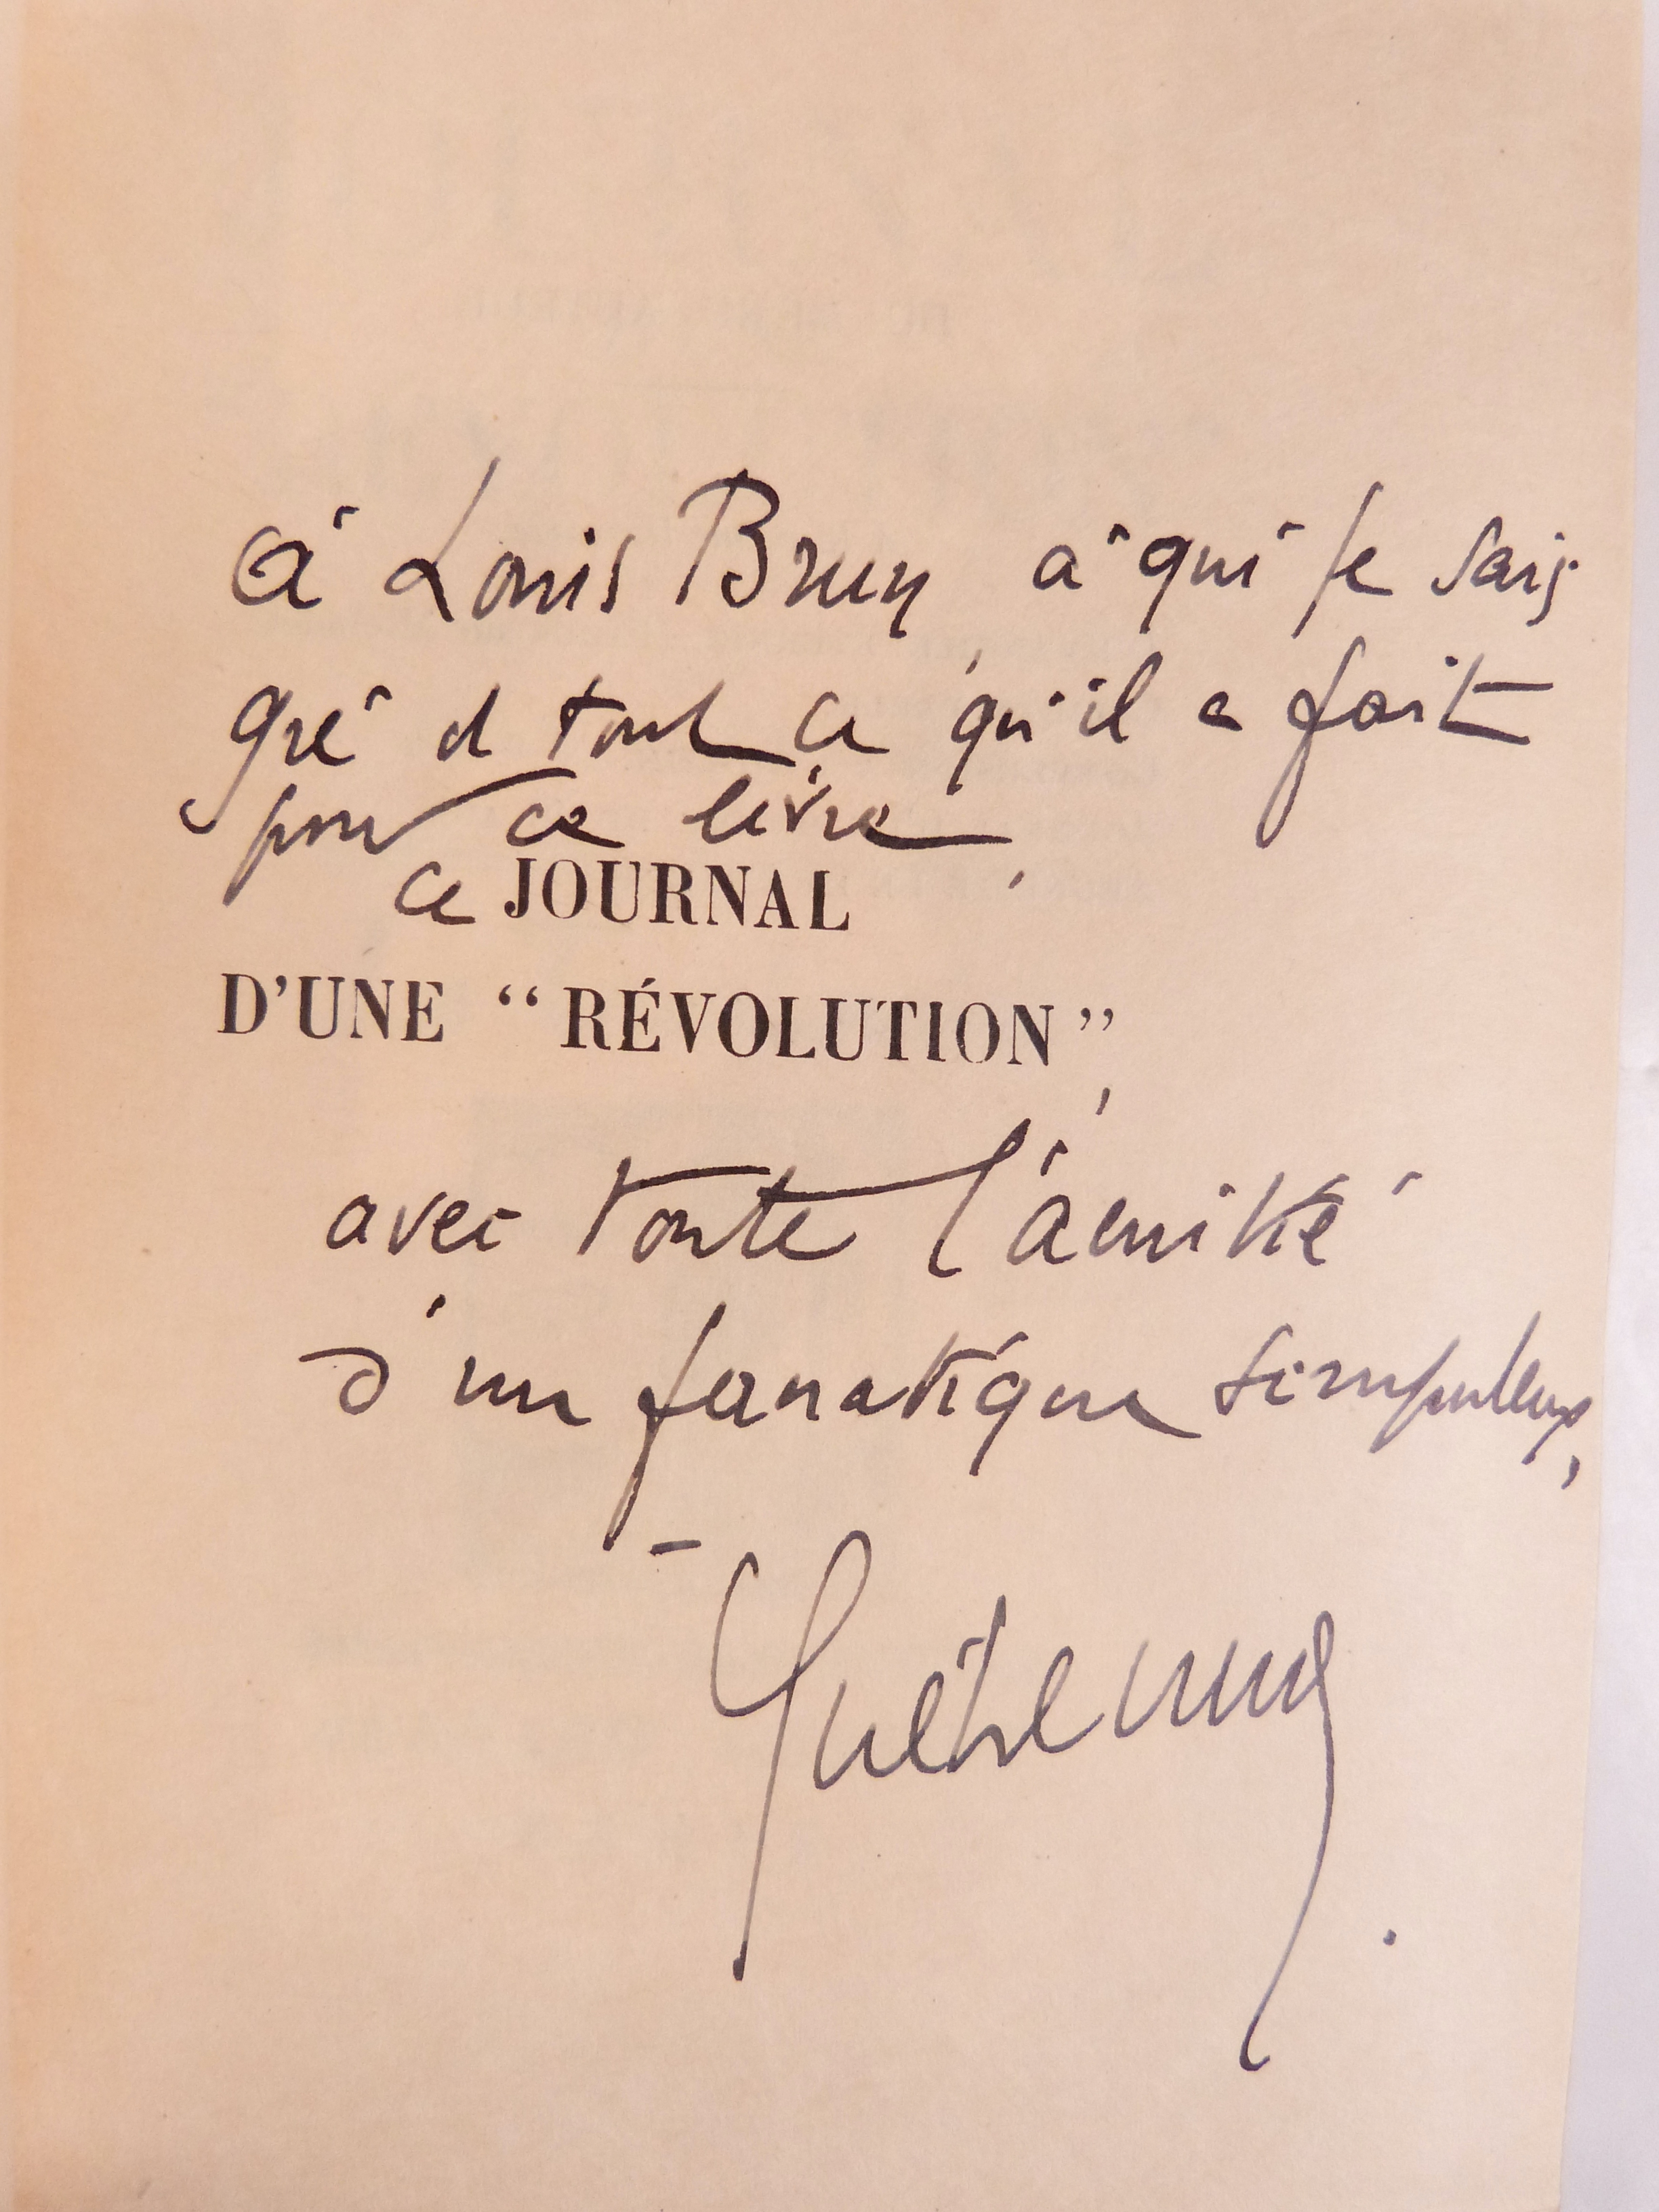 à Louis Brun, à qui je sais
gré de tout ce qu'il a fait
pour ce livre,
ce JOURNAL
D'UNE “RÉVOLUTION”,
avec toute l'amitié
d'un fanatique scrupuleux,
– Guéhenno.